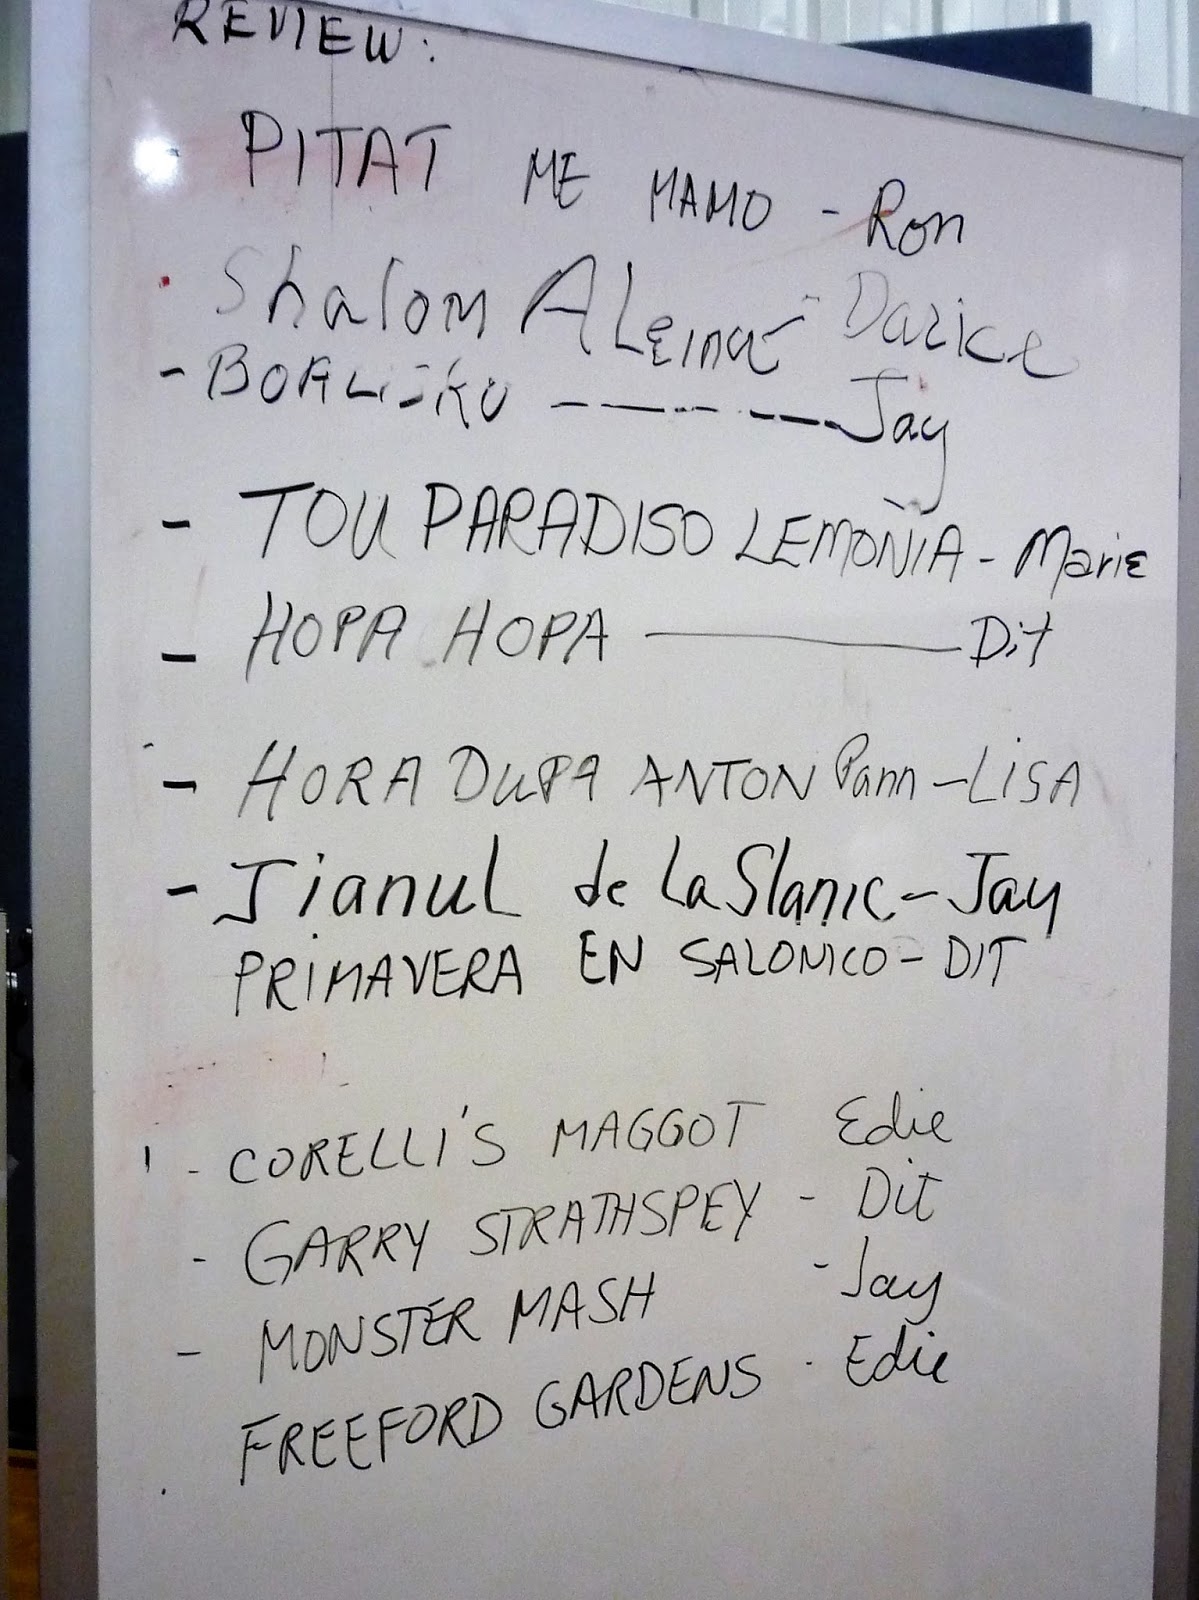 REVIEW:
- PITAT ME MAMO - Ron
Shalom ALeina - Darice
- BOALISKU ------- Jay
- TOU PARADISO LEMOÑIA - Marie
- HOPA HOPA — Dit
- HORA DUPA ANTON Pann - LISA
- Jianul de La Slanic - Jay
PRIMAVERA EN SALONICO - DIT
- CORELLI'S MAGGOT Edie
- GARRY STRATHSPEY - Dit
- MONSTER MASH - Jay
FREEFORD GARDENS - Edie